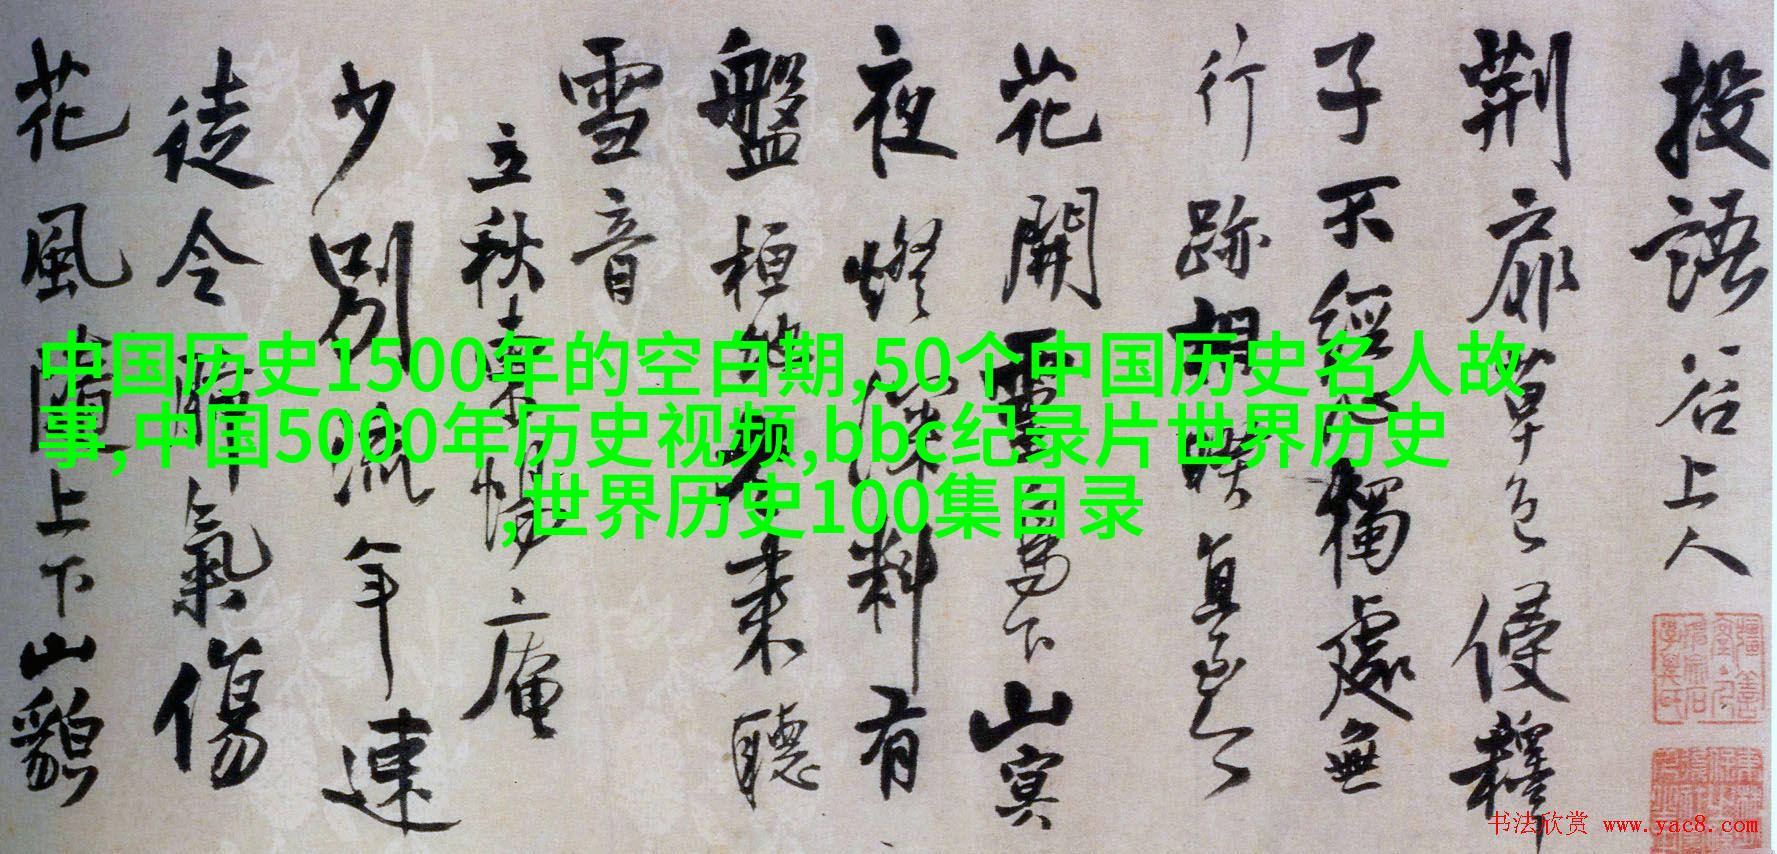 投語谷上人
荆扉草色侵釋
子不經心獨處無
行跡相真
花開下山
夜燈深料有
盤桓来聽
雪音
立秋庵
少别流年速
徒令氣傷
花風隨上下山貌
中国历史1500年的空白期,50个中国历史名人故
事,中国5000年历史视频,bbc纪录片世界历史
,世界历史100集目录
书法欣赏 www.yac8.com